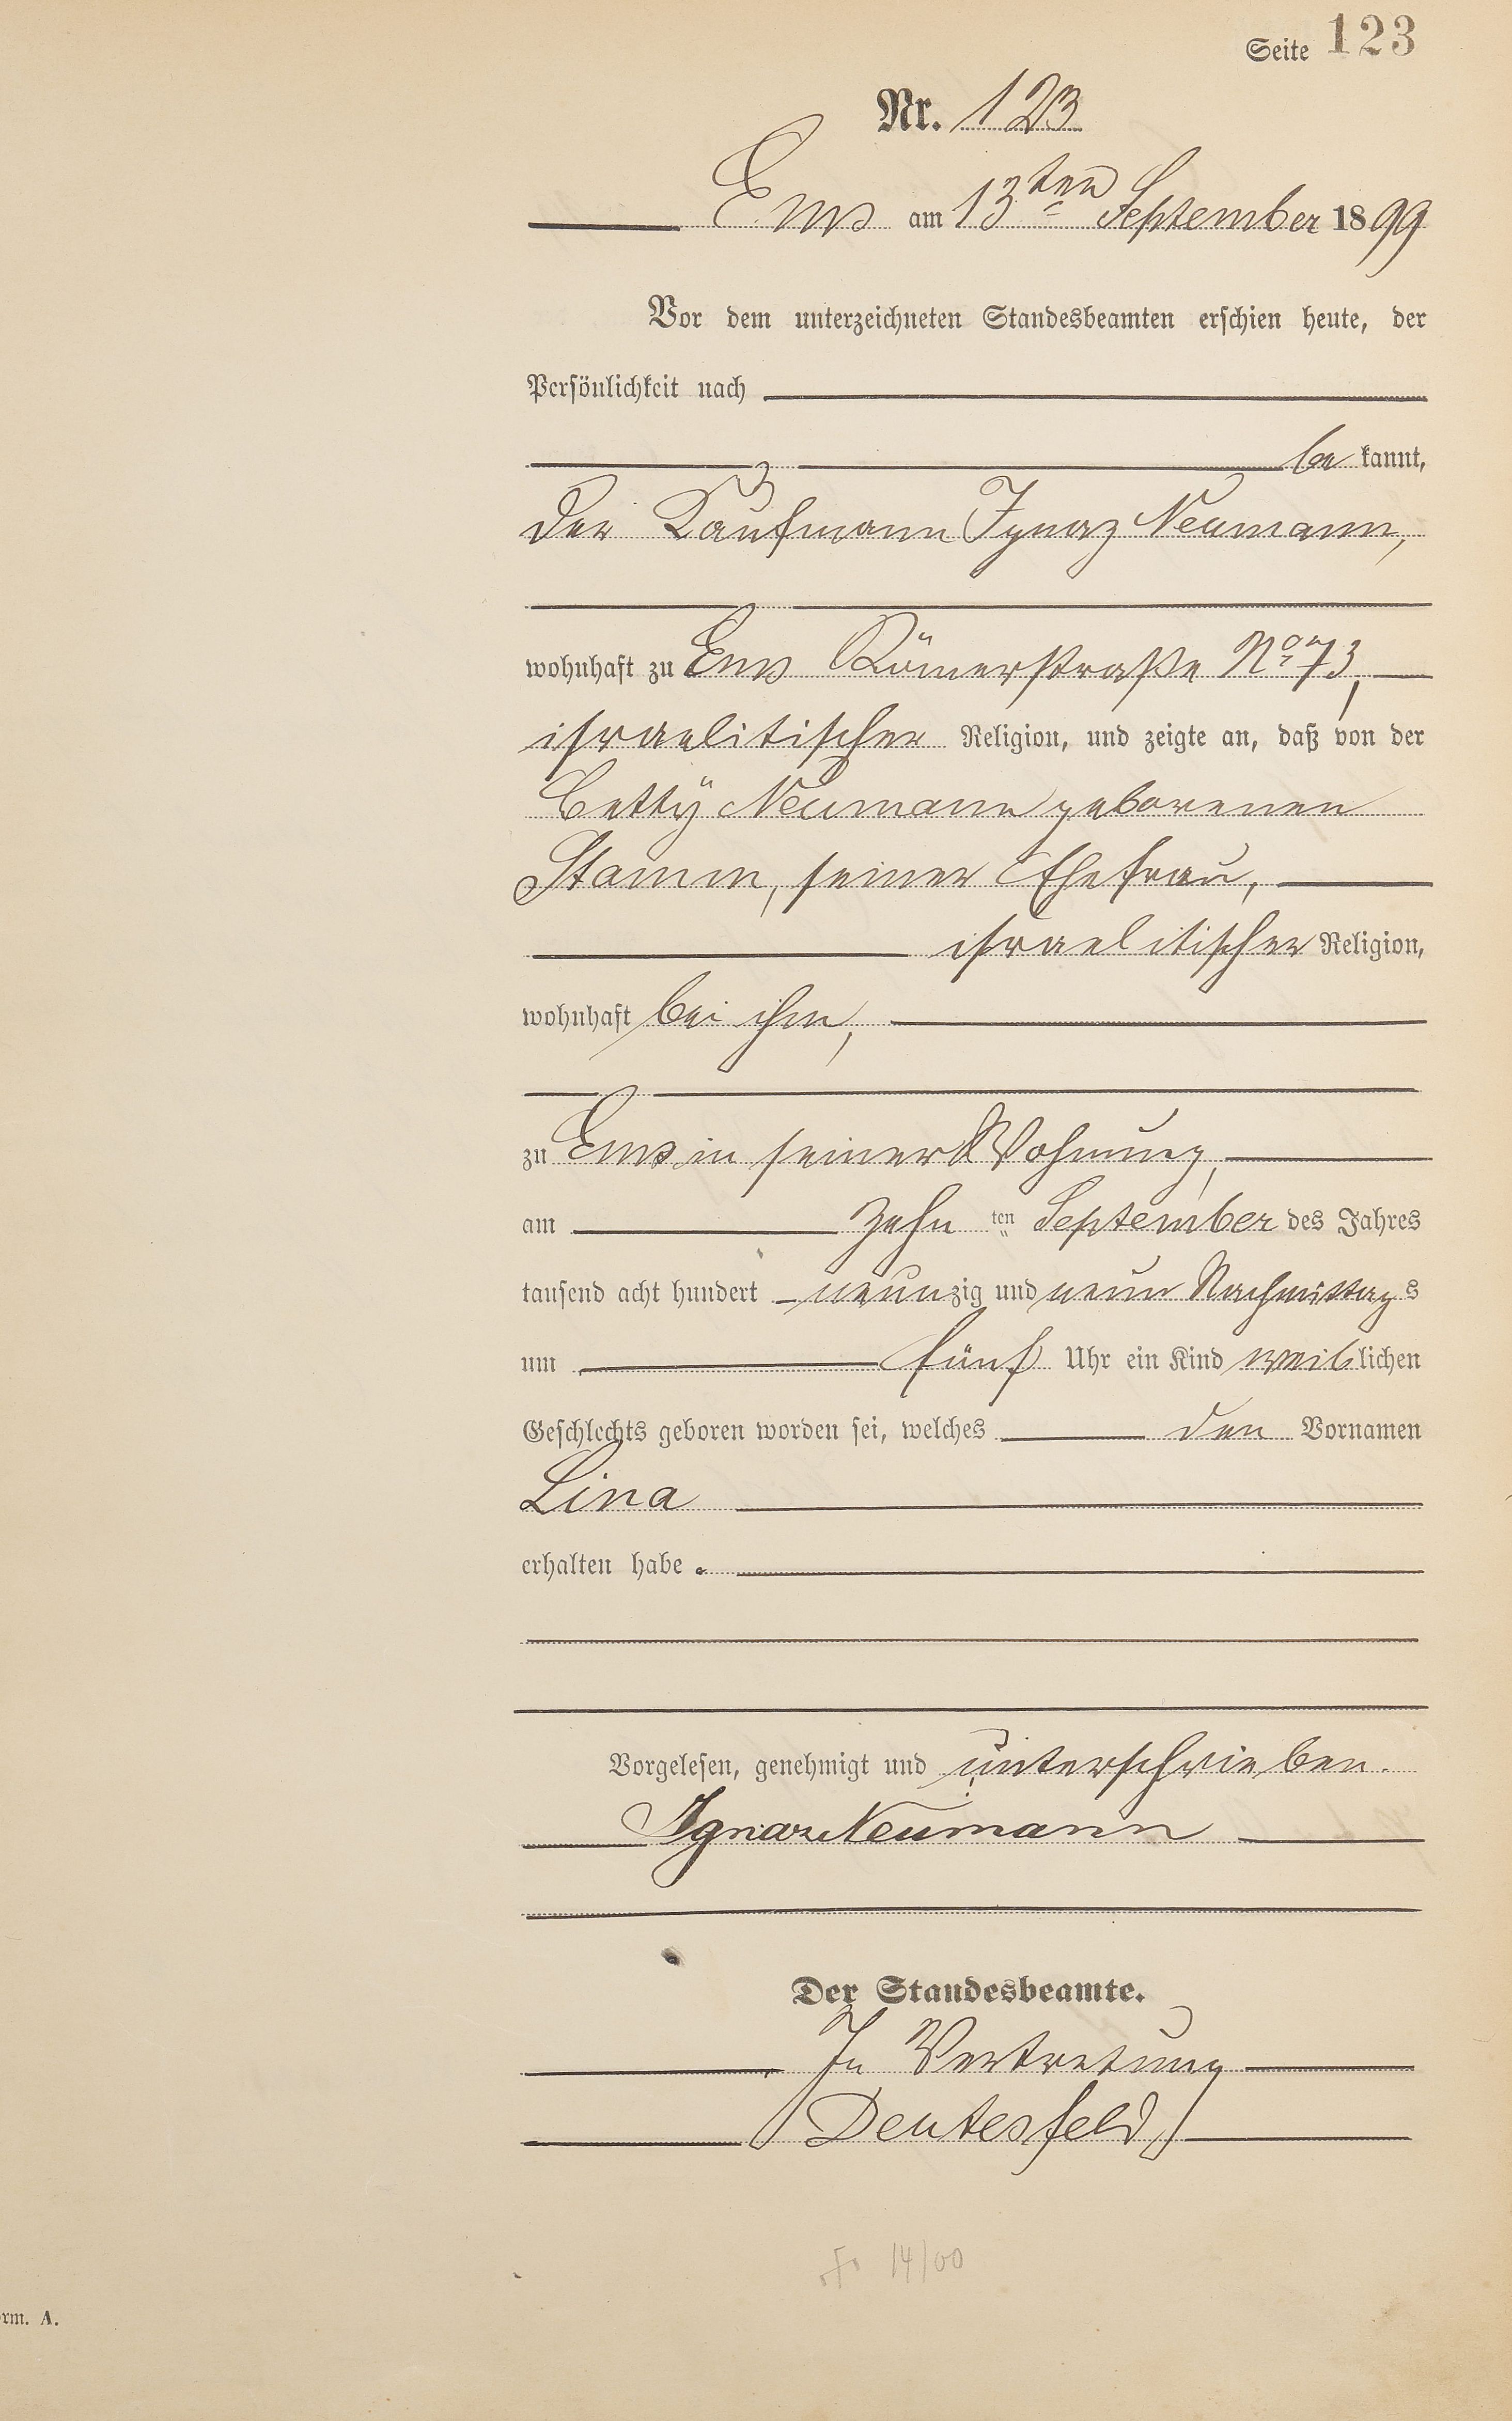 Seite 123
Nr. 123
Ems am 13ten September 1899
Vor dem unterzeichneten Standesbeamten erschien heute, der
Persönlichkeit nach
be kannt,
der Kaufmann Ignaz Neumann,
wohnhaft zu Ems Römerstraße No 73,
israelitischer Religion, und zeigte an, daß von der
Betty Neumann geborenen
Stamm, seiner Ehefrau,
israelitischer Religion,
wohnhaft bei ihm,
zu Ems in seiner Wohnung,
am zehn ten September des Jahres
tausend acht hundert neunzig und neun Nachmittags
um fünf Uhr ein Kind weiblichen
Geschlechts geboren worden sei, welches den Vornamen
Lina
erhalten habe.
Vorgelesen, genehmigt und unterschrieben.
Ignaz Neumann
Der Standesbeamte.
In Vertretung
Deutesfeld
14/00
rm. A.